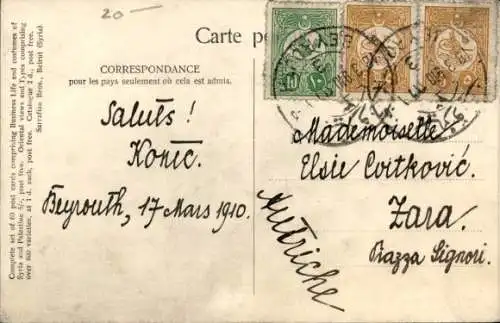 20-
Carte
CORRESPONDANCE
pour les pays seulement où cela est admis.
Complete set of 60 post cards comprising Business Life and costumes of
Syria and Palestine 5/, post free. Oriental views and Types comprising
over 800 variation, at 1 d. each, post free. Catalogue 2 d., post free.
Sarrafian Bros., Beirut (Syria).
Saluts!
Konić.
Beyrouth, 17 Mars 1910.
Mademoiselle
Elsie Cvitković.
Zara.
Piazza Signori.
Autriche
BEYROUTH
10